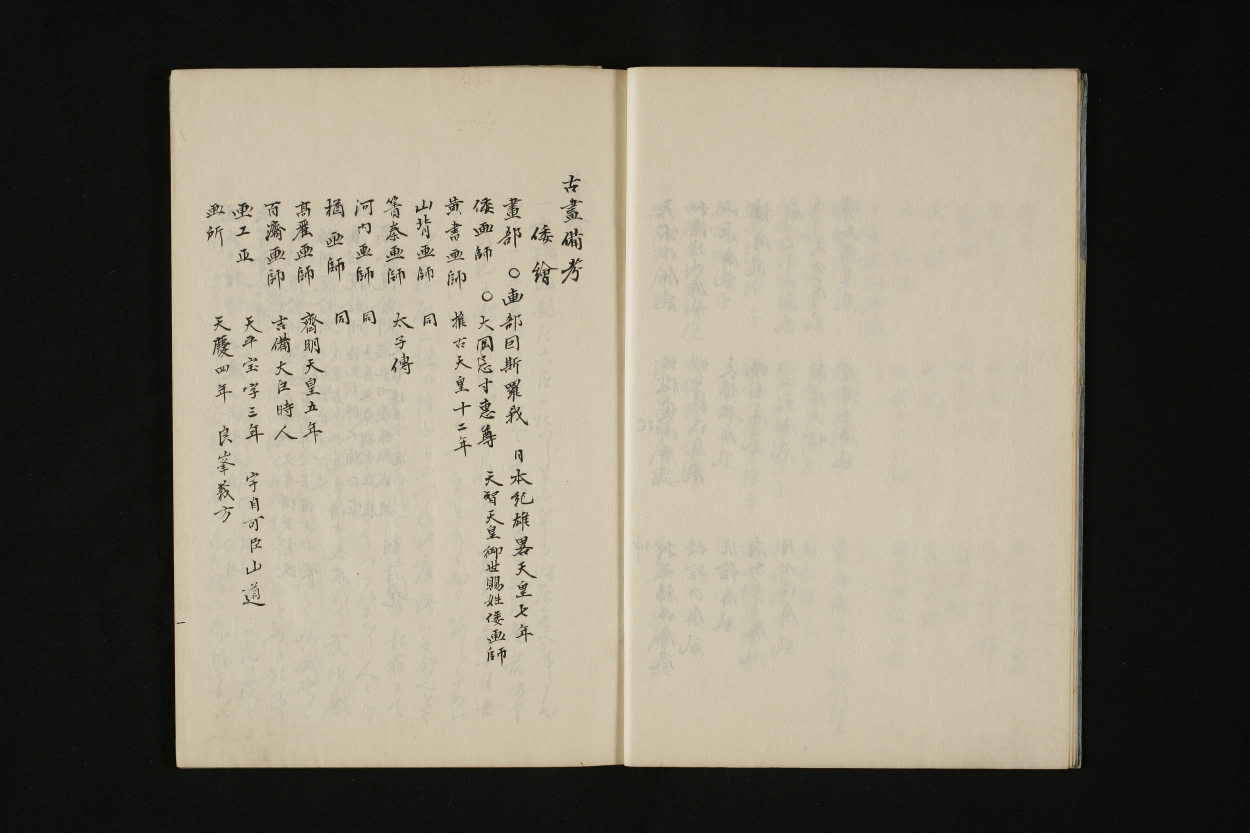 古畫備考
倭繪
畫部 ○画部因斯羅我 日本紀雄畧天皇七年
倭画師 ○大岡忌寸惠尊 天智天皇御世賜姓倭画師
黄書画師 推古天皇十二年
山背画師 同
簀秦画師 太子傳
河内画師 同
楢画師 同
高麗画師 齊明天皇五年
百濟画師 吉備大臣時人
画工正 天平宝字三年 宇自可臣山道
画所 天慶四年 良峯義方